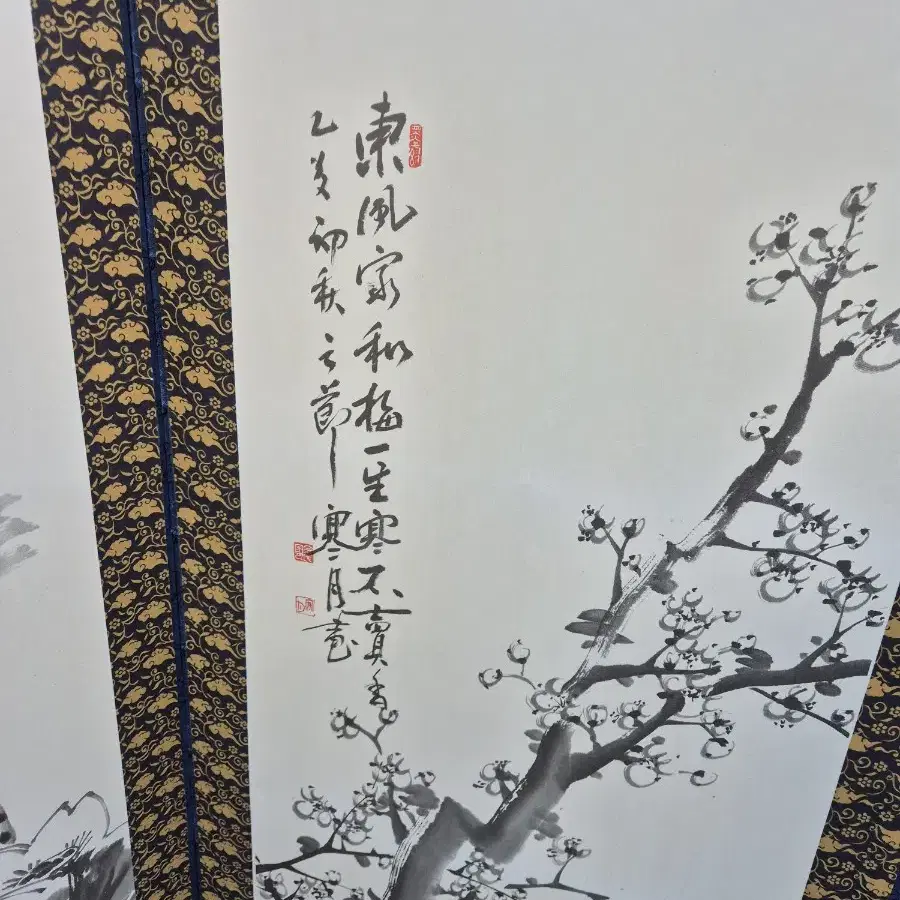 東風家和梅一生寒不賣香
乙亥初秋之節 寒月畫